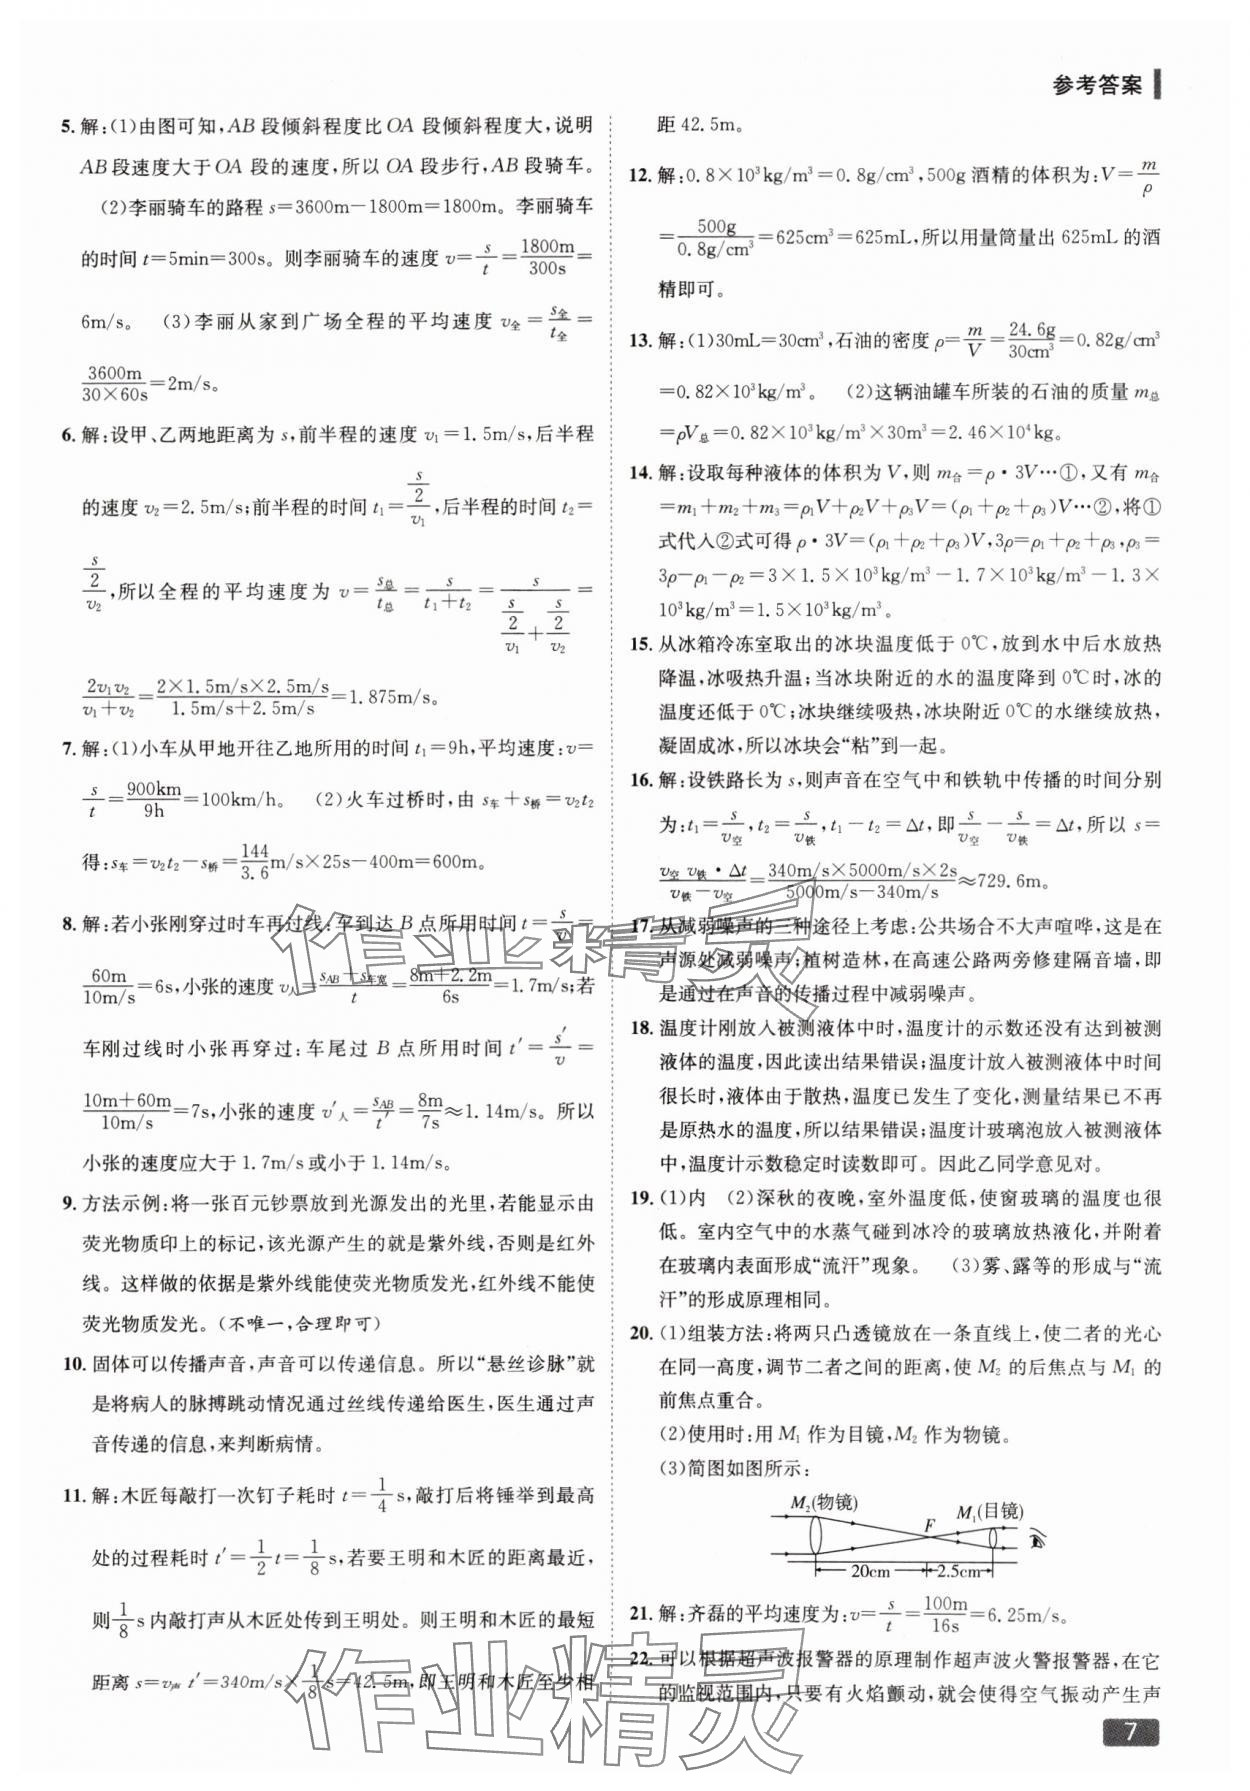 参考答案
5. 解:(1)由图可知,AB 段倾斜程度比 OA 段倾斜程度大,说明
AB 段速度大于 OA 段的速度,所以 OA 段步行,AB 段骑车。
(2)李丽骑车的路程 s=3600m-1800m=1800m。李丽骑车
的时间 t=5min=300s。则李丽骑车的速度 v=s/t=1800m/300s=
6m/s。 (3)李丽从家到广场全程的平均速度 v全=s全/t全=
3600m/(30×60s)=2m/s。
6. 解:设甲、乙两地距离为 s,前半程的速度 v₁=1.5m/s,后半程
的速度 v₂=2.5m/s;前半程的时间 t₁=(s/2)/v₁,后半程的时间 t₂=
(s/2)/v₂,所以全程的平均速度为 v=s总/t总=s/(t₁+t₂)=s/((s/2)/v₁+(s/2)/v₂)=
2v₁v₂/(v₁+v₂)=(2×1.5m/s×2.5m/s)/(1.5m/s+2.5m/s)=1.875m/s。
7. 解:(1)小车从甲地开往乙地所用的时间 t₁=9h,平均速度:v=
s/t=900km/9h=100km/h。 (2)火车过桥时,由 s车+s桥=v₂t₂
得:s车=v₂t₂-s桥=144/3.6m/s×25s-400m=600m。
8. 解:若小张刚穿过时车再过线:车到达 B 点所用时间 t=s/v=
60m/(10m/s)=6s,小张的速度 v人=(sAB+s车宽)/t=(8m+2.2m)/6s=1.7m/s;若
车刚过线时小张再穿过:车尾过 B 点所用时间 t′=s′/v=
(10m+60m)/(10m/s)=7s,小张的速度 v′人=sAB/t′=8m/7s≈1.14m/s。所以
小张的速度应大于 1.7m/s 或小于 1.14m/s。
9. 方法示例:将一张百元钞票放到光源发出的光里,若能显示由
荧光物质印上的标记,该光源产生的就是紫外线,否则是红外
线。这样做的依据是紫外线能使荧光物质发光,红外线不能使
荧光物质发光。(不唯一,合理即可)
10. 固体可以传播声音,声音可以传递信息。所以“悬丝诊脉”就
是将病人的脉搏跳动情况通过丝线传递给医生,医生通过声
音传递的信息,来判断病情。
11. 解:木匠每敲打一次钉子耗时 t=1/4s,敲打后将锤举到最高
处的过程耗时 t′=1/2t=1/8s,若要王明和木匠的距离最近,
则1/8s 内敲打声从木匠处传到王明处。则王明和木匠的最短
距离 s=v声 t′=340m/s×1/8s=42.5m,即王明和木匠至少相
距 42.5m。
12. 解:0.8×10³kg/m³=0.8g/cm³,500g 酒精的体积为:V=m/ρ
=500g/(0.8g/cm³)=625cm³=625mL,所以用量筒量出 625mL 的酒
精即可。
13. 解:(1)30mL=30cm³,石油的密度 ρ=m/V=24.6g/30cm³=0.82g/cm³
=0.82×10³kg/m³。 (2)这辆油罐车所装的石油的质量 m总
=ρV总=0.82×10³kg/m³×30m³=2.46×10⁴kg。
14. 解:设取每种液体的体积为 V,则 m合=ρ·3V…①,又有 m合
=m₁+m₂+m₃=ρ₁V+ρ₂V+ρ₃V=(ρ₁+ρ₂+ρ₃)V…②,将①
式代入②式可得 ρ·3V=(ρ₁+ρ₂+ρ₃)V,3ρ=ρ₁+ρ₂+ρ₃,ρ₃=
3ρ-ρ₁-ρ₂=3×1.5×10³kg/m³-1.7×10³kg/m³-1.3×
10³kg/m³=1.5×10³kg/m³。
15. 从冰箱冷冻室取出的冰块温度低于 0℃,放到水中后水放热
降温,冰吸热升温;当冰块附近的水的温度降到 0℃时,冰的
温度还低于 0℃;冰块继续吸热,冰块附近 0℃的水继续放热,
凝固成冰,所以冰块会“粘”到一起。
16. 解:设铁路长为 s,则声音在空气中和铁轨中传播的时间分别
为:t₁=s/v空,t₂=s/v铁,t₁-t₂=Δt,即s/v空-s/v铁=Δt,所以 s=
v空 v铁·Δt/(v铁-v空)=(340m/s×5000m/s×2s)/(5000m/s-340m/s)≈729.6m。
17. 从减弱噪声的三种途径上考虑:公共场合不大声喧哗,是在
声源处减弱噪声;植树造林,在高速公路两旁修建隔音墙,都
是通过在声音的传播过程中减弱噪声。
18. 温度计刚放入被测液体中时,温度计的示数还没有达到被测
液体的温度,因此读出结果错误;温度计放入被测液体中时间
很长时,液体由于散热,温度已发生了变化,测量结果已不再
是原热水的温度,所以结果错误;温度计玻璃泡放入被测液体
中,温度计示数稳定时读数即可。因此乙同学意见对。
19. (1)内 (2)深秋的夜晚,室外温度低,使窗玻璃的温度也很
低。室内空气中的水蒸气碰到冰冷的玻璃放热液化,并附着
在玻璃内表面形成“流汗”现象。 (3)雾、露等的形成与“流
汗”的形成原理相同。
20. (1)组装方法:将两只凸透镜放在一条直线上,使二者的光心
在同一高度,调节二者之间的距离,使 M₂ 的后焦点与 M₁ 的
前焦点重合。
(2)使用时:用 M₁ 作为目镜,M₂ 作为物镜。
(3)简图如图所示:
M₂(物镜) F M₁(目镜)
20cm 2.5cm
21. 解:齐磊的平均速度为:v=s/t=100m/16s=6.25m/s。
22. 可以根据超声波报警器的原理制作超声波火警报警器,在它
的监视范围内,只要有火焰颤动,就会使得空气振动产生声
7
作业精灵
作业精灵